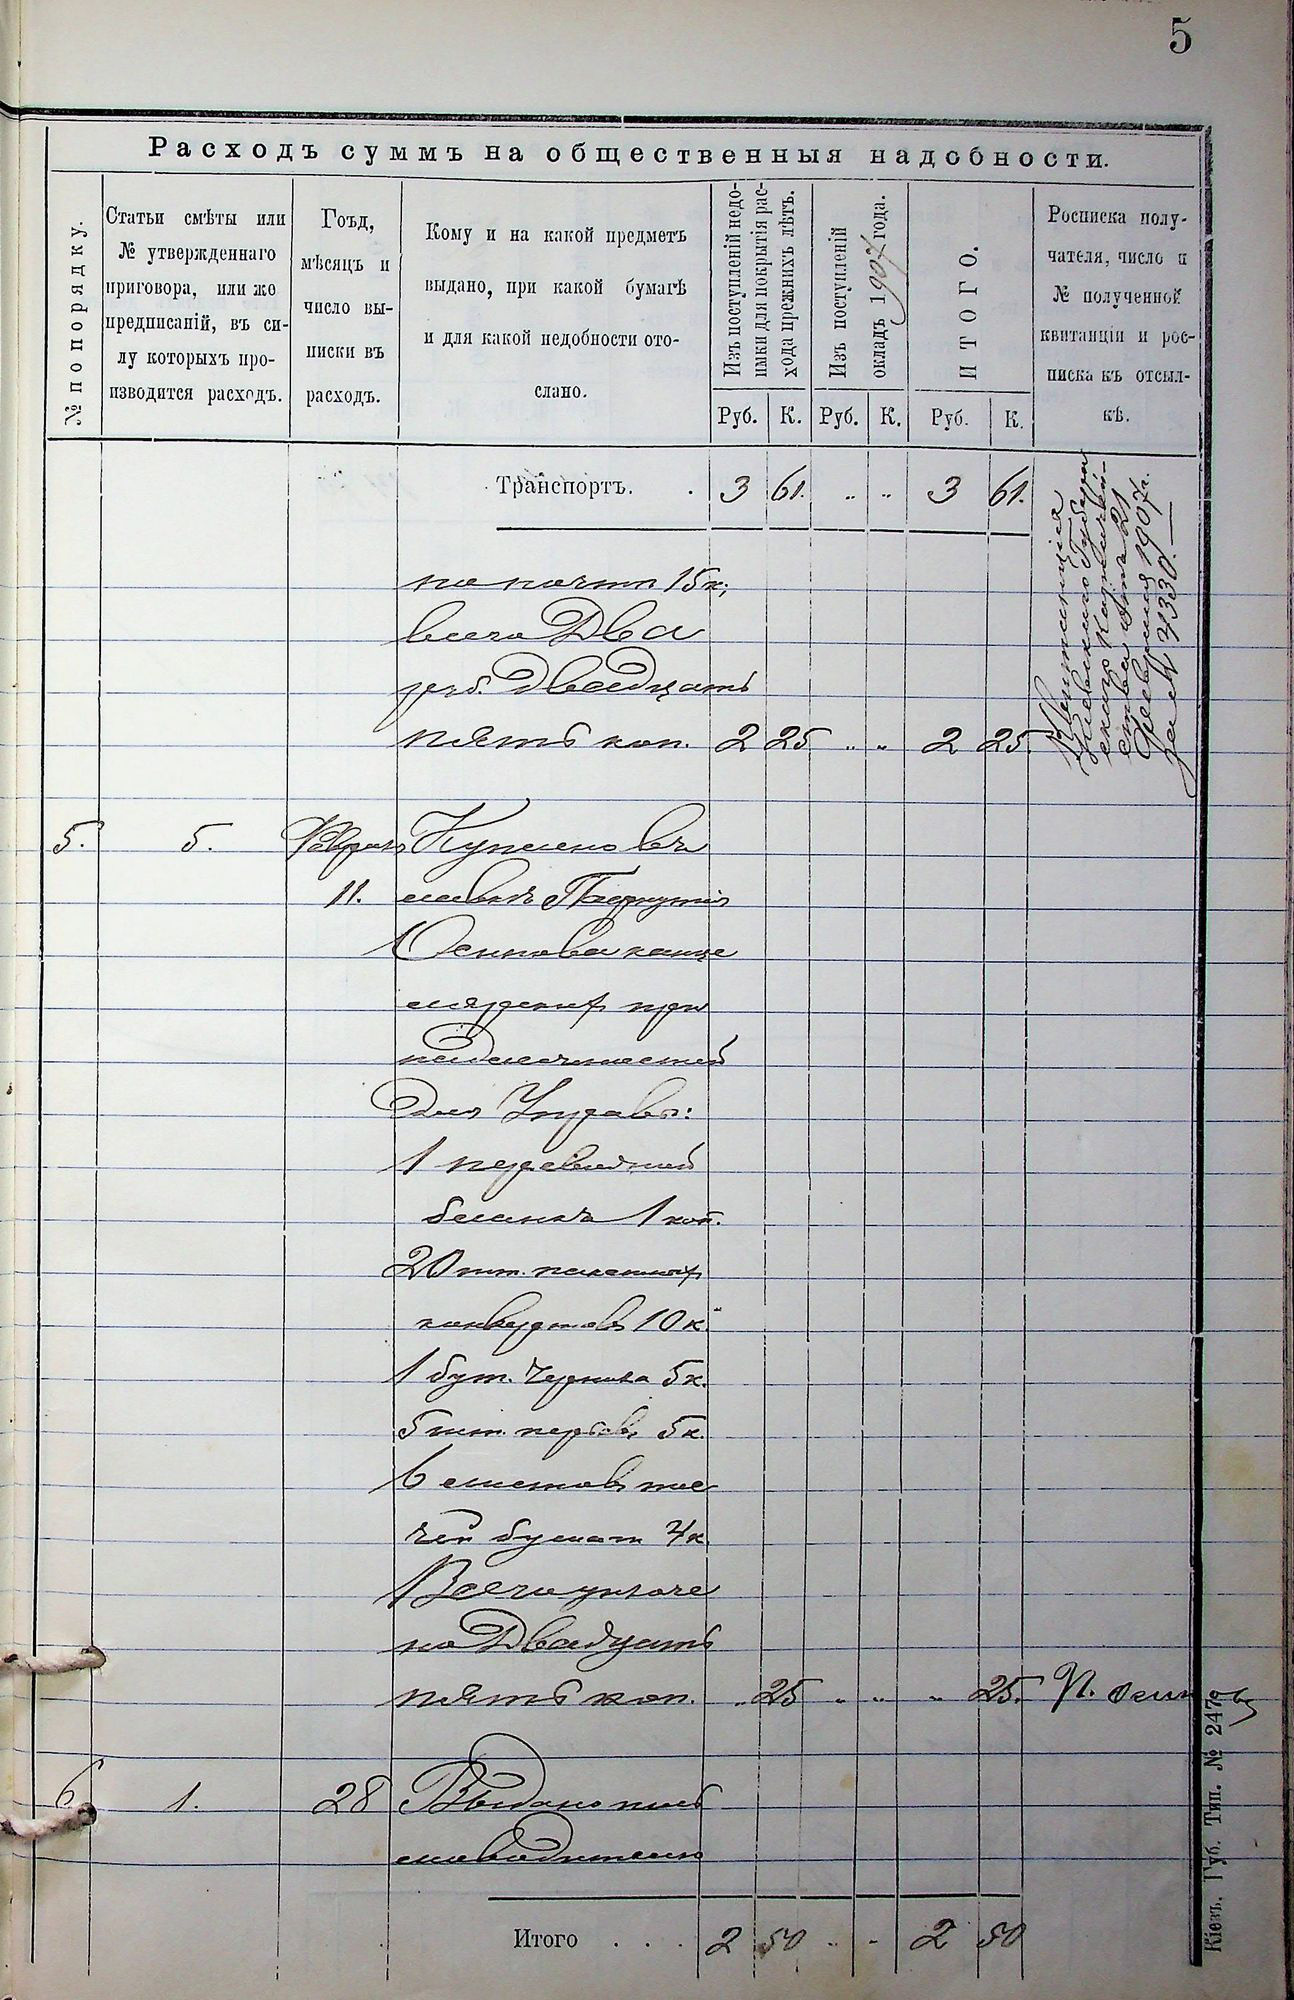 5
Расходъ суммъ на общественныя надобности.
№ по порядку.
Статьи смѣты или
№ утвержденнаго
приговора, или же
предписаній, въ си-
лу которыхъ про-
изводится расходъ.
Гоъд,
мѣсяцъ и
число вы-
писки въ
расходъ.
Кому и на какой предметъ
выдано, при какой бумагѣ
и для какой недобности ото-
слано.
Изъ поступленій недо-
имки для покрытія рас-
хода прежнихъ лѣтъ.
Изъ поступленій
окладъ 1907 года.
ИТОГО.
Росписка полу-
чателя, число и
№ полученной
квитанціи и рос-
писка къ отсыл-
кѣ.
Руб. К. Руб. К. Руб. К.
Транспортъ. . 3 61. „ „ 3 61.
Квитанція
Кіевскаго Губерн
скаго Казначей-
ства отъ 21
Февраля 1907 г.
за № 4330.—
по почтѣ 15 к;
всего Два
руб. двадцать
пять коп. 2 25 „ „ 2 25.
5. 5. Февраля Куплено въ
11. лавкѣ
Осипова канце
лярскихъ при
надлежностей
для Управы:
1 переводный
бланкъ 1 коп.
20 шт.
конвертовъ 10 к.
1 бут. чернила 5 к.
5 шт. перьевъ 5 к.
6 листовъ пис
чей бумаги 4 к.
Всего уплаче
но Двадцать
пять коп. „ 25 „ „ „ 25. П. Осиповъ
6 1. 28 Выдано пись
моводителю
Итого . . . 2 50 „ „ 2 50
Кіевъ. Губ. Тип. № 2479